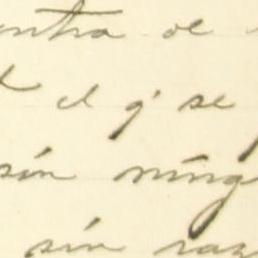 ntra de
el q' se
sin ning
sin raz